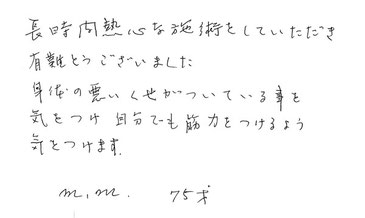 長時間熱心な施術をしていただき
有難とうございました
身体の悪いくせがついている事を
気をつけ自分でも筋力をつけるよう
気をつけます.
m.m. 75才